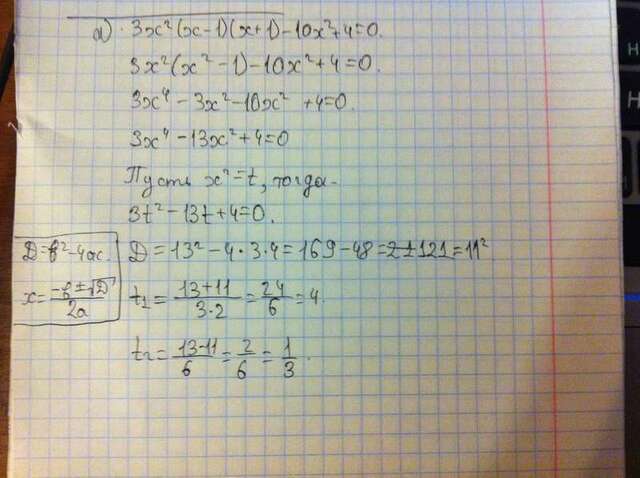 а) 3x²(x-1)(x+1)-10x²+4=0.
3x²(x²-1)-10x²+4=0.
3x⁴-3x²-10x²+4=0.
3x⁴-13x²+4=0
Пусть x²=t, тогда
3t²-13t+4=0.
D=b²-4ac.
D=13²-4·3·4=169-48=121=11²
x=(-b±√D)/2a
t₁=(13+11)/(3·2)=24/6=4.
t₂=(13-11)/6=2/6=1/3.